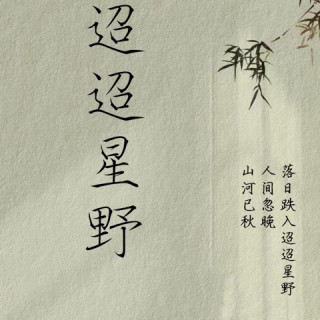 迢迢星野
落日跌入迢迢星野
人间忽晚
山河已秋